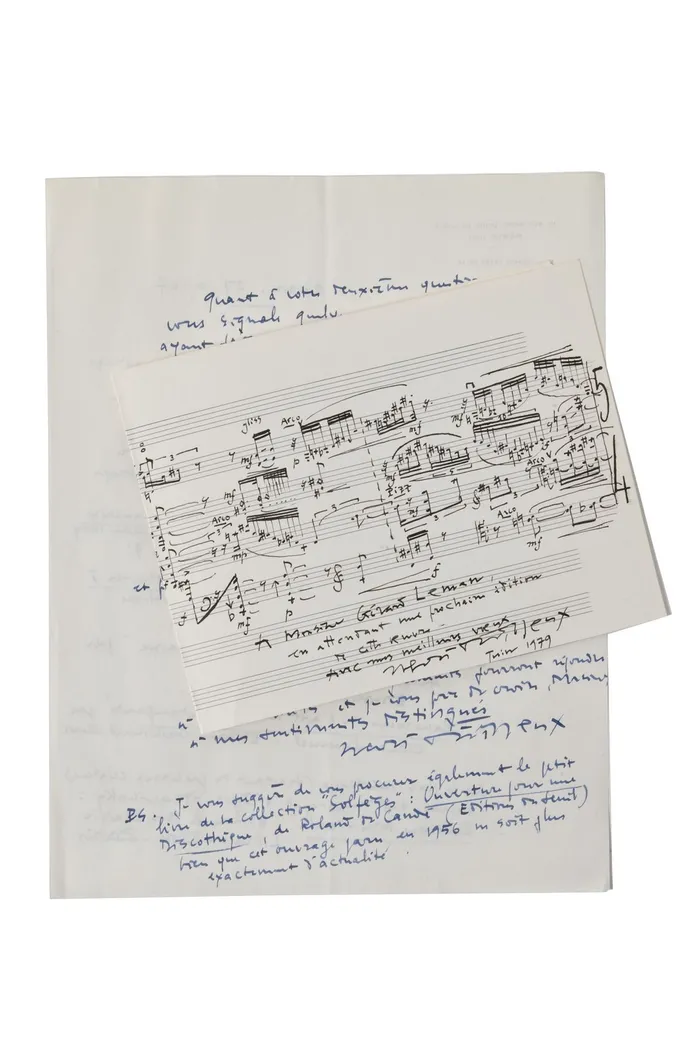 Quant à votre deuxième
vous signale
ayant
gliss
Arco
3
mf
p
mf
mf
5
4
mf
Pizz
5
Arco
3
Arco
3
mp
3
mf
f
mf
p
f
A Monsieur Gérard Leman
en attendant une prochaine édition
de cette œuvre.
Avec mes meilleurs vœux
Henri Dutilleux
Juin 1979
et
pourront répondre
et je vous prie de croire, Monsieur
à mes sentiments distingués
Henri Dutilleux
Je vous suggère de vous procurer également le petit
livre de la collection "Solfèges" : Ouverture pour une
Discothèque, de Roland de Candé (Editions du Seuil)
bien que cet ouvrage paru en 1956 ne soit plus
exactement d'actualité.